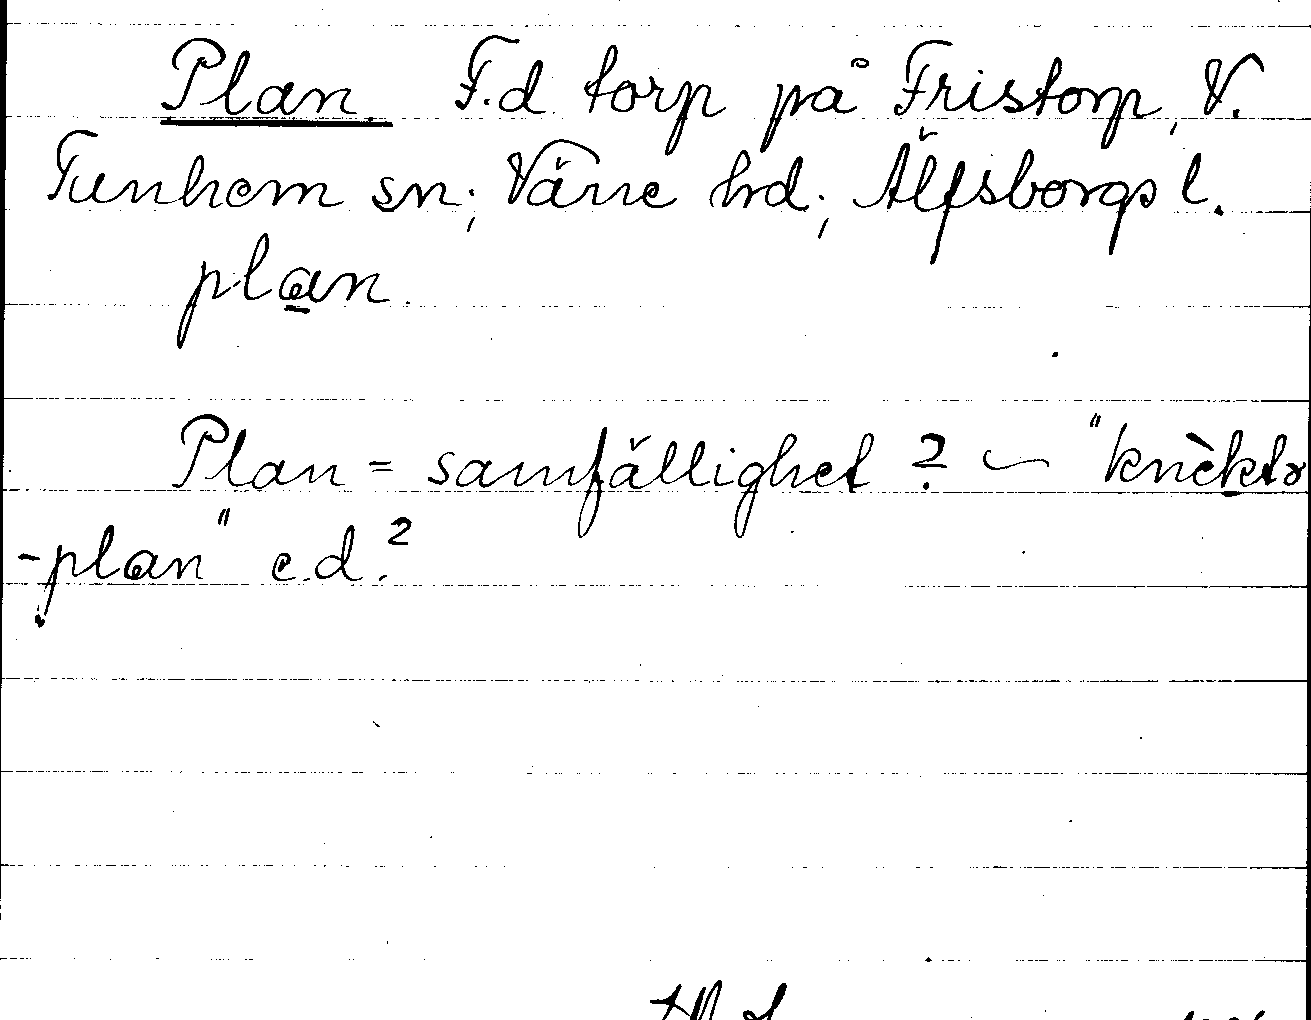 Plan. F.d torp på Fristorp, V.
Tunhem sn; Väne hd; Älfsborgs l.
plan.
Plan = samfällighet? ~ "knèkts
-plan" e.d.?